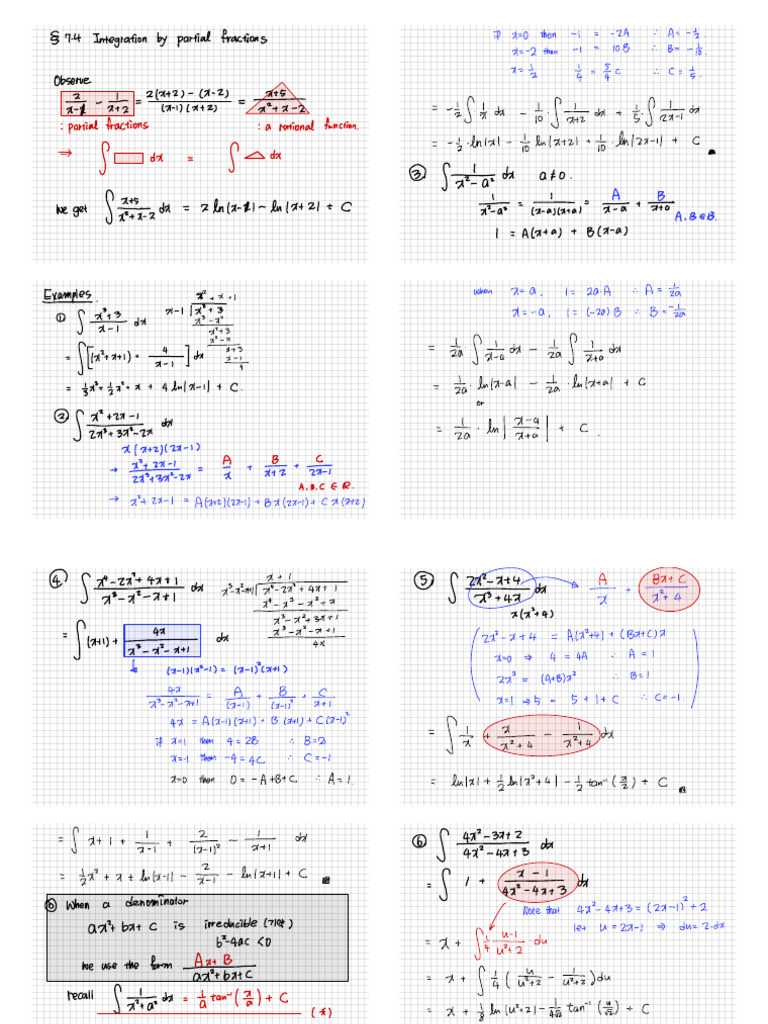 § 7.4 Integration by partial fractions
Observe
2/(x-1) - 1/(x+2) = (2(x+2) - (x-2))/((x-1)(x+2)) = (x+5)/(x²+x-2)
: partial fractions : a rational function.
⇒ ∫ □ dx = ∫ △ dx
We get ∫ (x+5)/(x²+x-2) dx = 2 ln|x-1| - ln|x+2| + C
if x=0 then -1 = -2A ∴ A = -1/2
x=-2 then -1 = 10B ∴ B = -1/10
x=1/2 1/4 = 5/4 C ∴ C = 1/5
= -1/2 ∫ 1/x dx - 1/10 · ∫ 1/(x+2) dx + 1/5 ∫ 1/(2x-1) dx
= -1/2 · ln|x| - 1/10 ln|x+2| + 1/10 · ln|2x-1| + C
③ ∫ 1/(x²-a²) dx a≠0.
1/(x²-a²) = 1/((x-a)(x+a)) = A/(x-a) + B/(x+a)
A.B∈R.
1 = A(x+a) + B(x-a)
Examples.
① ∫ (x³+3)/(x-1) dx
x²+x+1
x-1 √ x³+3
x³-x²
x²+3
x²-x
x+3
x-1
4
= ∫ [(x²+x+1) + 4/(x-1)] dx
= 1/3 x³ + 1/2 x² + x + 4 ln|x-1| + C.
② ∫ (x²+2x-1)/(2x³+3x²-2x) dx
x(x+2)(2x-1)
→ (x²+2x-1)/(2x³+3x²-2x) = A/x + B/(x+2) + C/(2x-1)
A.B.C ∈ R.
→ x²+2x-1 = A(x+2)(2x-1) + Bx(2x-1) + Cx(x+2)
when x=a, 1 = 2a·A ∴ A = 1/2a
x=-a, 1 = (-2a)B ∴ B = -1/2a
= 1/2a ∫ 1/(x-a) dx - 1/2a ∫ 1/(x+a) dx
= 1/2a · ln|x-a| - 1/2a · ln|x+a| + C
or
= 1/2a · ln|(x-a)/(x+a)| + C.
④ ∫ (x⁴-2x²+4x+1)/(x³-x²-x+1) dx
x+1
x³-x²-x+1 √ x⁴-2x²+4x+1
x⁴-x³-x²+x
x³-x²+3x+1
x³-x²-x+1
4x
= ∫ (x+1) + 4x/(x³-x²-x+1) dx
(x-1)(x²-1) = (x-1)²(x+1)
4x/(x³-x²-x+1) = A/(x-1) + B/(x-1)² + C/(x+1)
4x = A(x-1)(x+1) + B(x+1) + C(x-1)²
if x=1 then 4=2B ∴ B=2
x=-1 then -4=4C ∴ C=-1
x=0 then 0=-A+B+C ∴ A=1.
⑤ ∫ (2x²-x+4)/(x³+4x) dx → A/x + (Bx+C)/(x²+4)
x(x²+4)
2x²-x+4 = A(x²+4) + (Bx+C)x
x=0 ⇒ 4=4A ∴ A=1
2x² = (A+B)x² ∴ B=1
x=1 ⇒ 5 = 5+1+C ∴ C=-1.
= ∫ 1/x + x/(x²+4) - 1/(x²+4) dx
= ln|x| + 1/2 ln|x²+4| - 1/2 tan⁻¹(x/2) + C
= ∫ x+1 + 1/(x-1) + 2/(x-1)² - 1/(x+1) dx
= 1/2 x² + x + ln|x-1| - 2/(x-1) - ln|x+1| + C
When a denominator
ax²+bx+c is irreducible (기약)
b²-4ac <0
we use the form (Ax+B)/(ax²+bx+c)
recall ∫ 1/(x²+a²) dx = 1/a tan⁻¹(x/a) + C
(*)
⑥ ∫ (4x²-3x+2)/(4x²-4x+3) dx
= ∫ 1 + (x-1)/(4x²-4x+3) dx
Note that 4x²-4x+3 = (2x-1)²+2
let u=2x-1 ⇒ du=2·dx
= x + ∫ 1/4 (u-1)/(u²+2) · du
= x + ∫ 1/4 ( u/(u²+2) - 1/(u²+2) ) du
= x + 1/8 ln|u²+2| - 1/(4√2) tan⁻¹(u/√2) + C